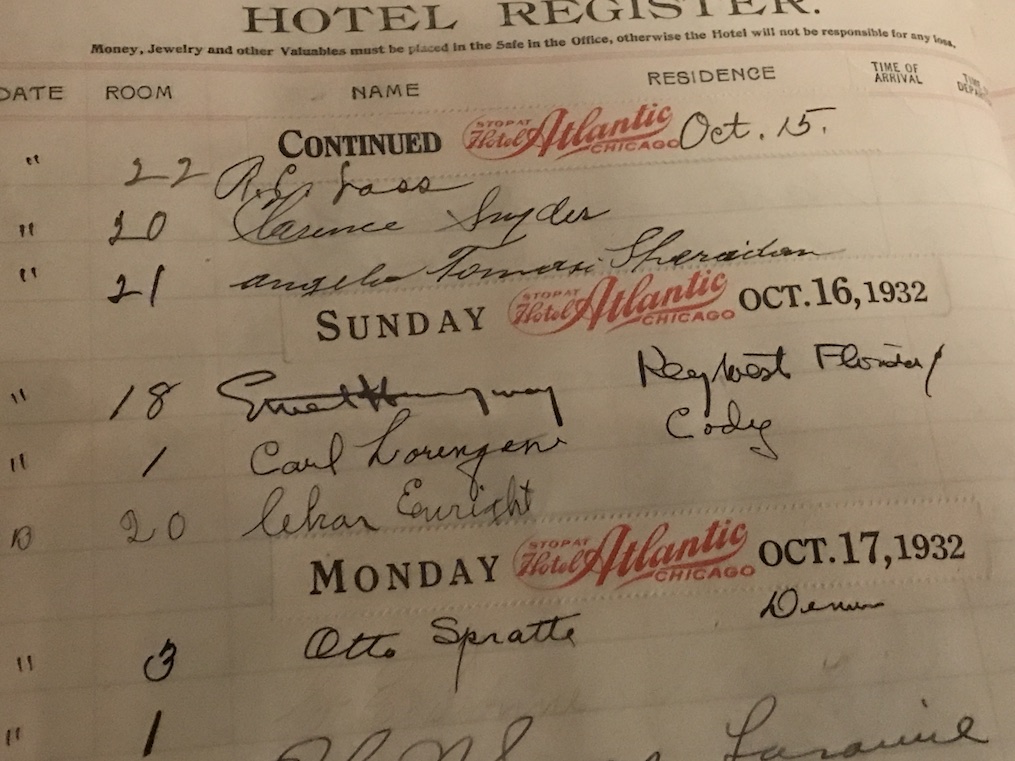 HOTEL REGISTER.
Money, Jewelry and other Valuables must be placed in the Safe in the Office, otherwise the Hotel will not be responsible for any loss.
DATE ROOM NAME RESIDENCE TIME OF ARRIVAL
CONTINUED STOP AT Hotel Atlantic CHICAGO Oct. 15.
" 22 R.E.
" 20 Clarence Snyder
" 21 Angelo Tomasi Sheridan
SUNDAY STOP AT Hotel Atlantic CHICAGO OCT. 16, 1932
" 18 Ernest Hemingway Key West Florida
" 1 Carl Lorenzen Cody
" 20 Enright
MONDAY STOP AT Hotel Atlantic CHICAGO OCT. 17, 1932
" 3 Otto Spratte Denver
" 1